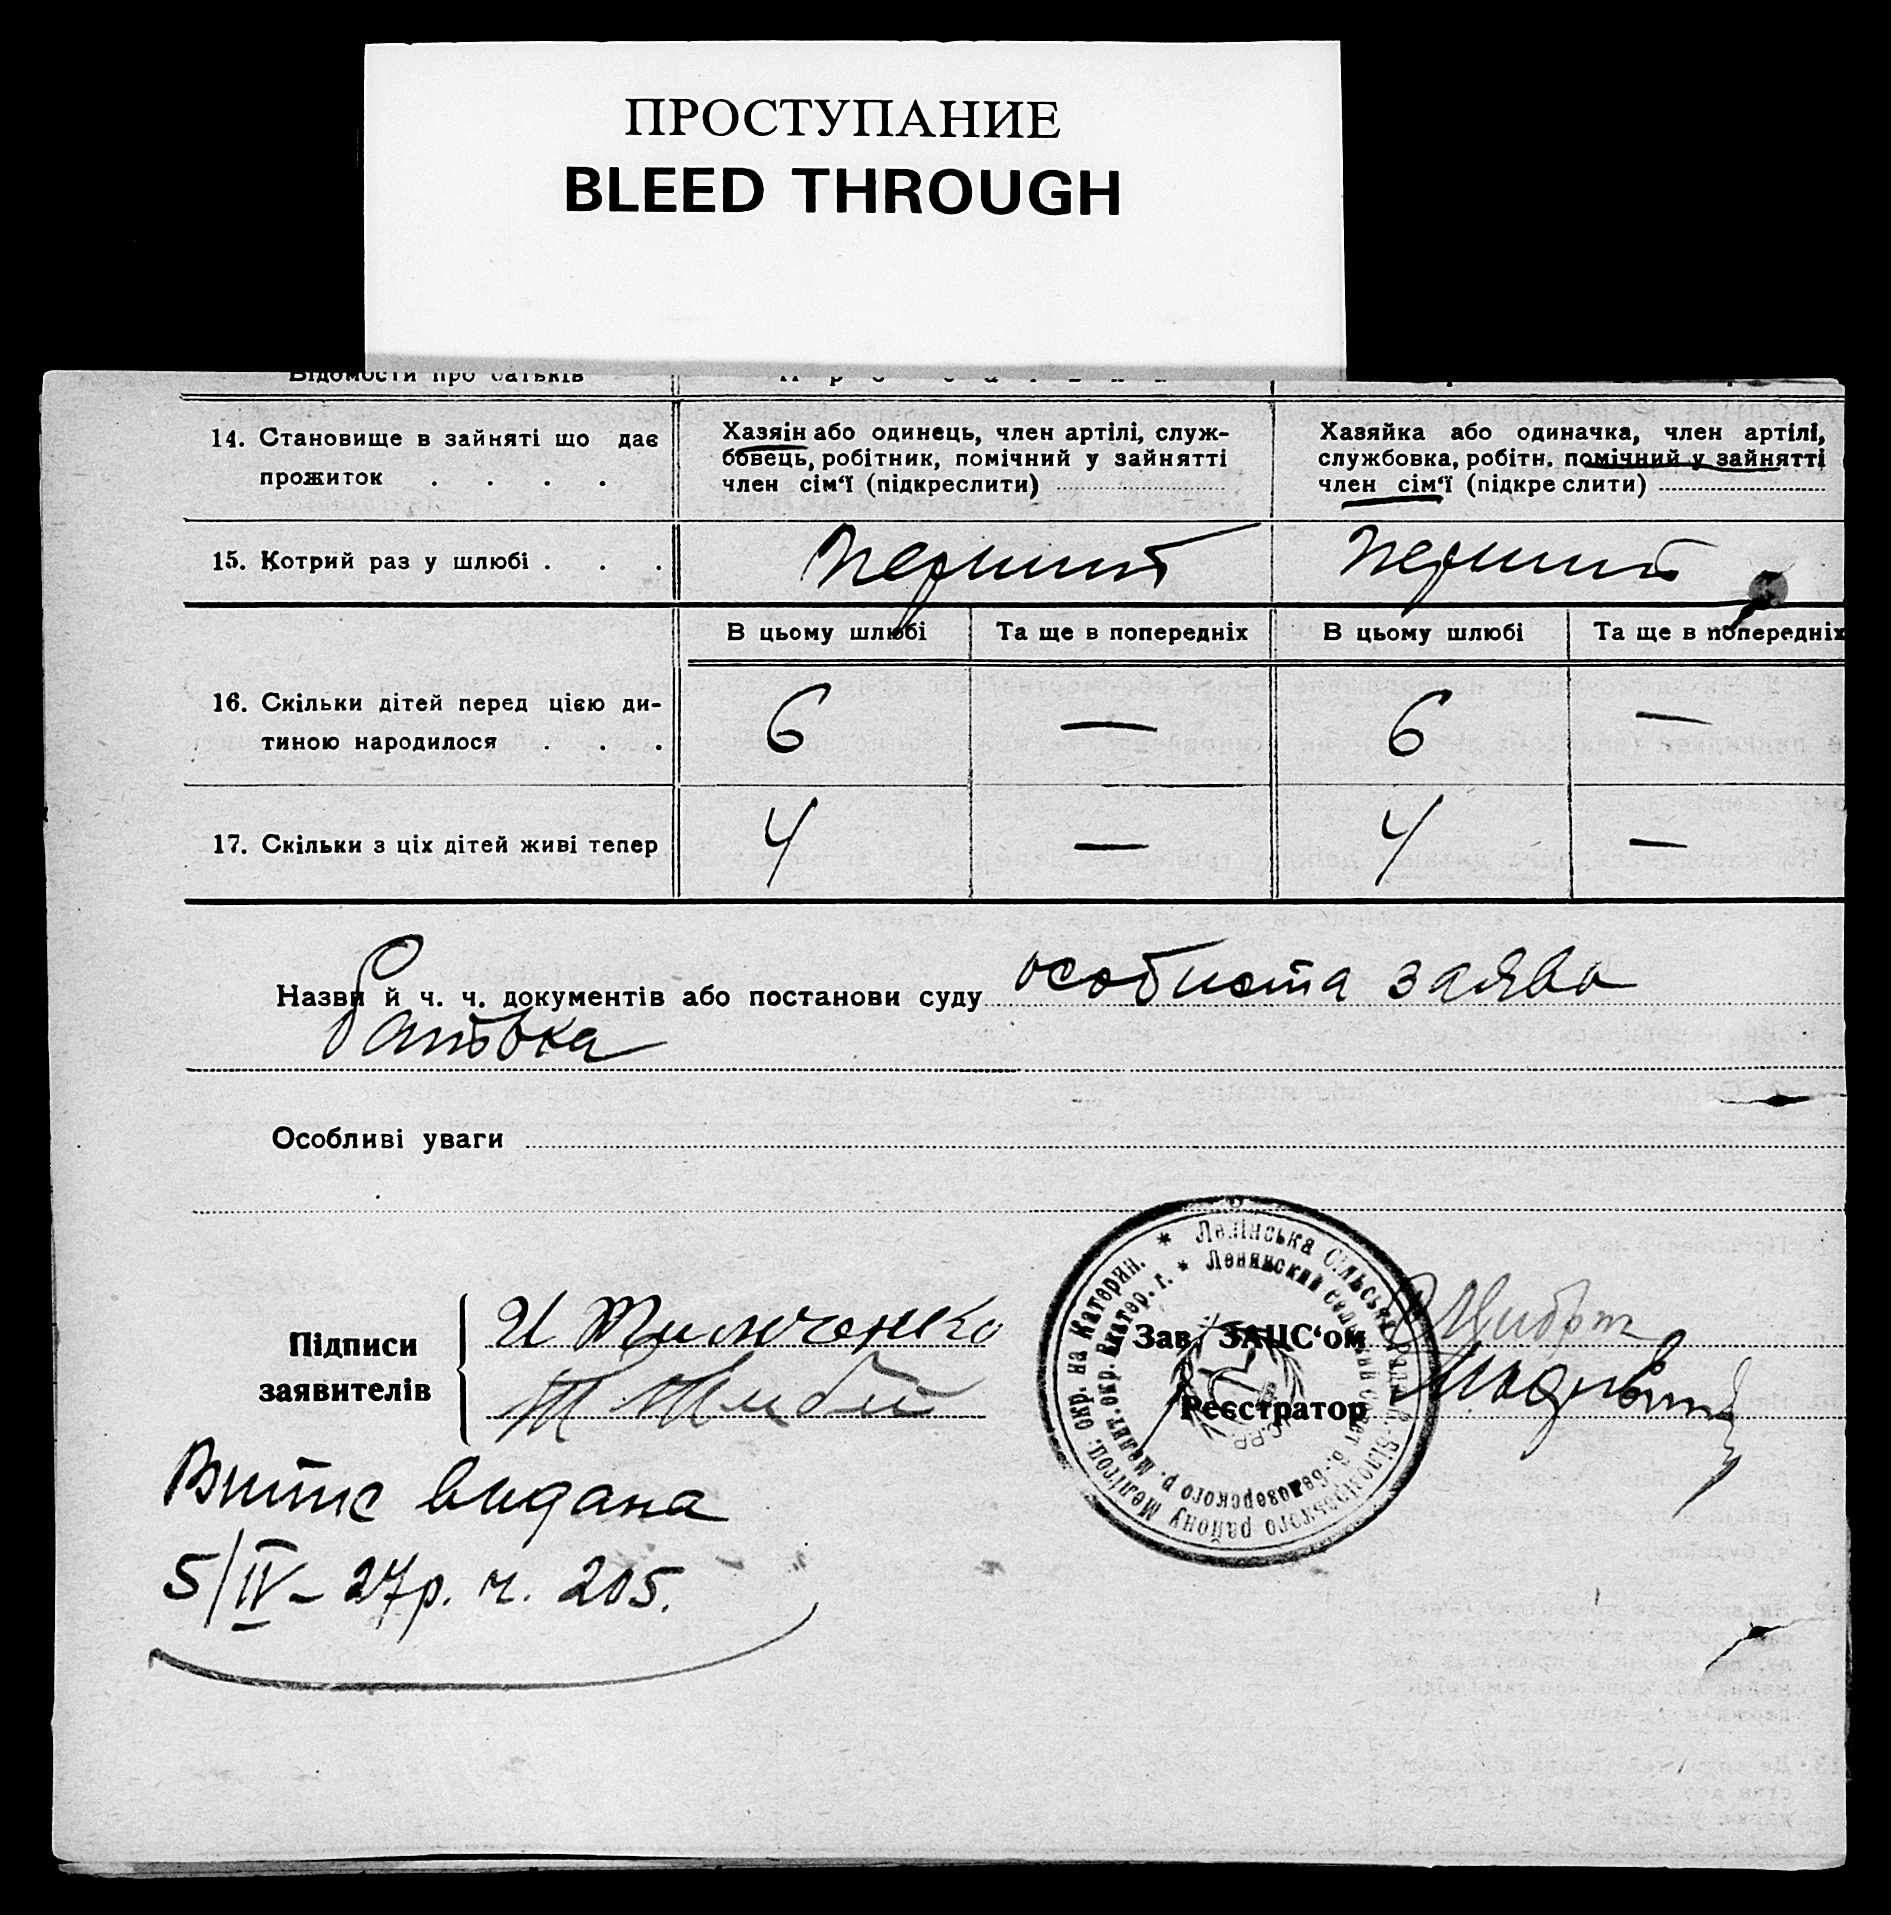 ПРОСТУПАНИЕ
BLEED THROUGH
Відомости про батьків
14. Становище в зайняті що дає прожиток . . . .
Хазяін або одинець, член артілі, служ-
бовець, робітник, помічний у зайнятті
член сім'ї (підкреслити)
Хазяйка або одиначка, член артілі,
службовка, робітн. помічний у зайнятті
член сім'ї (підкреслити)
15. Котрий раз у шлюбі . . . перший перший
В цьому шлюбі Та ще в попередніх В цьому шлюбі Та ще в попередніх
16. Скільки дітей перед цією ди-
тиною народилося . . . 6 — 6 —
17. Скільки з ціх дітей живі тепер 4 — 4 —
Назви й ч. ч. документів або постанови суду особиста заява
батька
Особливі уваги
Підписи
заявителів
И Тимченко
Зав. ЗАЦС'ом
Реєстратор
* Ленінська Сільська Рада В.-Білозірського району Мелітоп. окр. на Катерин.
* Ленинский сельский совет В.-Белозерского р. Мелит. окр. Екатер. г.
Витис видана
5/IV – 27р. ч. 205.